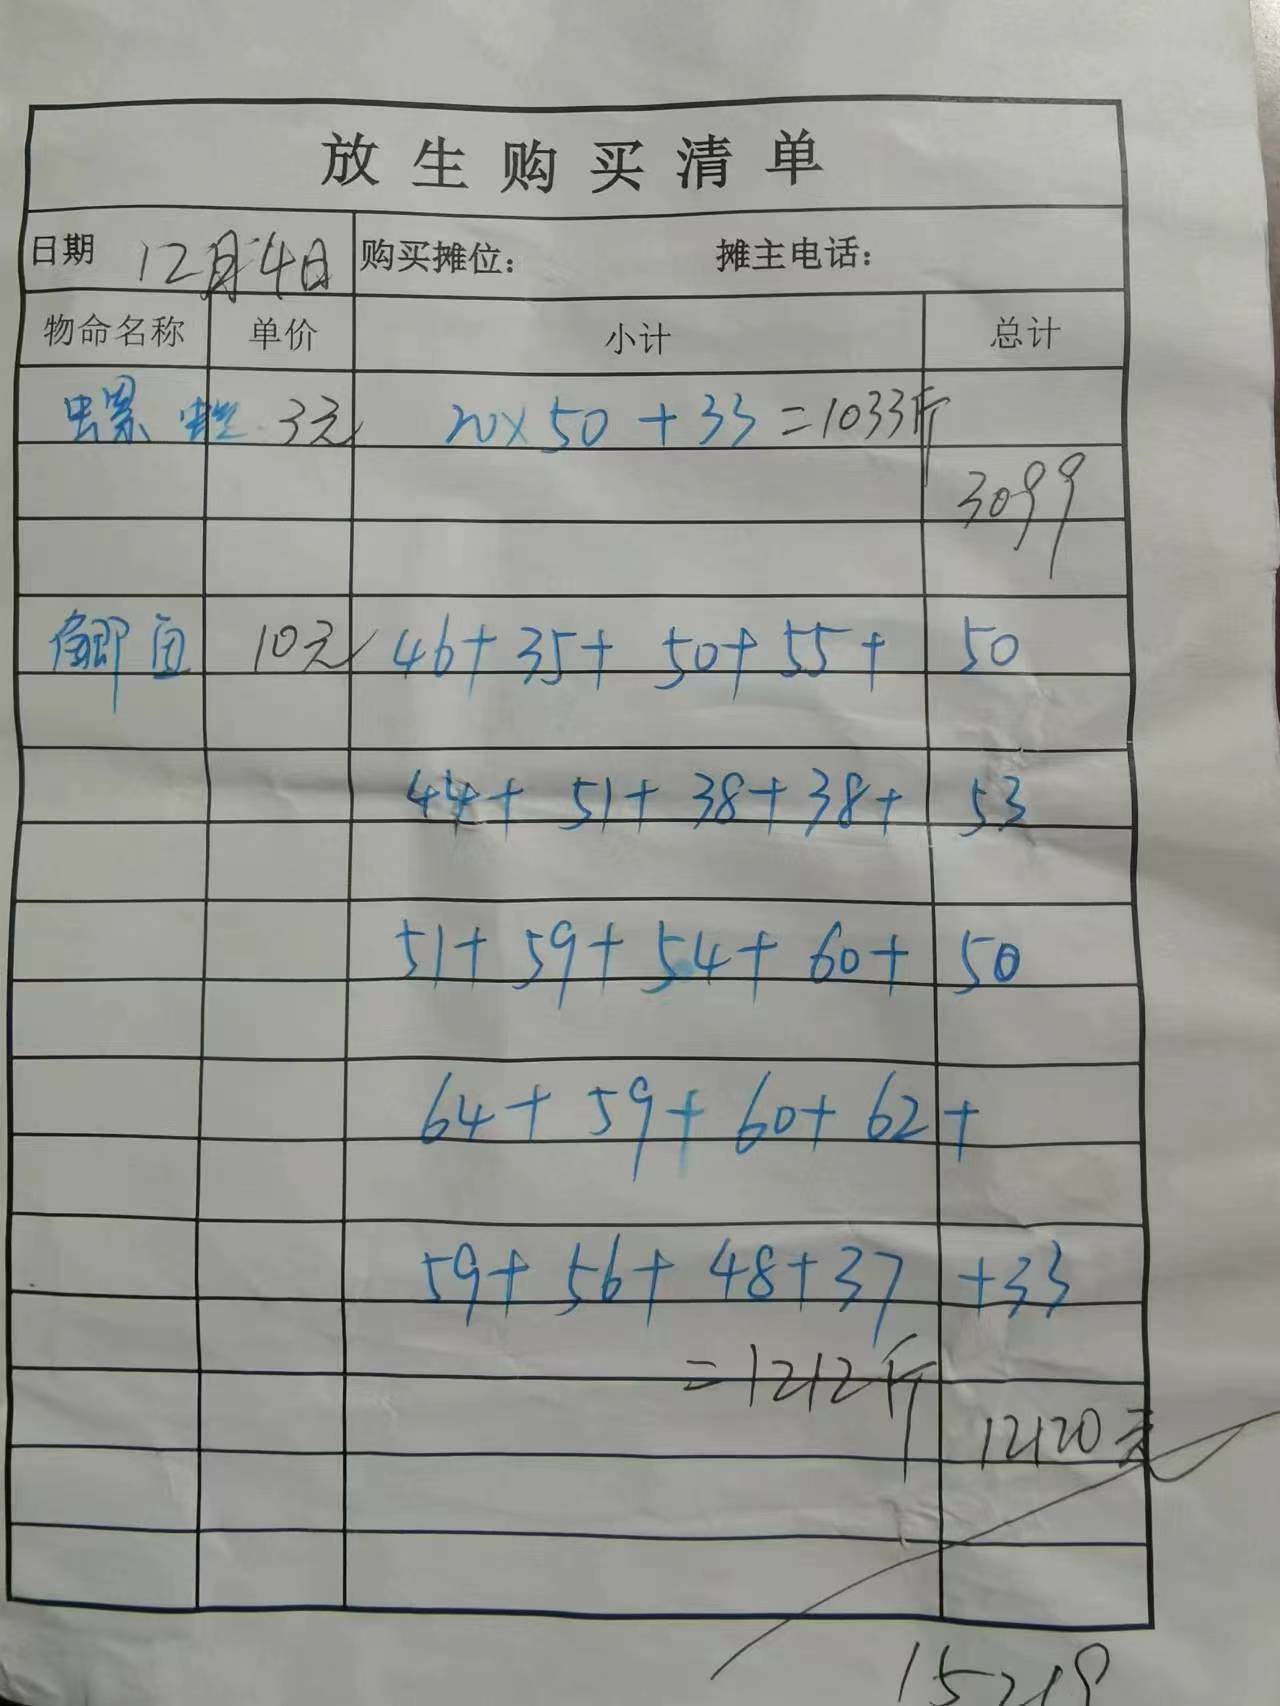 放生购买清单
日期 12月4日 购买摊位： 摊主电话：
物命名称 单价 小计 总计
螺蛳 3元 20×50+33=1033斤
3099
鲫鱼 10元 46+35+50+55+50
44+51+38+38+53
51+59+54+60+50
64+59+60+62+
59+56+48+37+33
=1212斤
12120元
15219